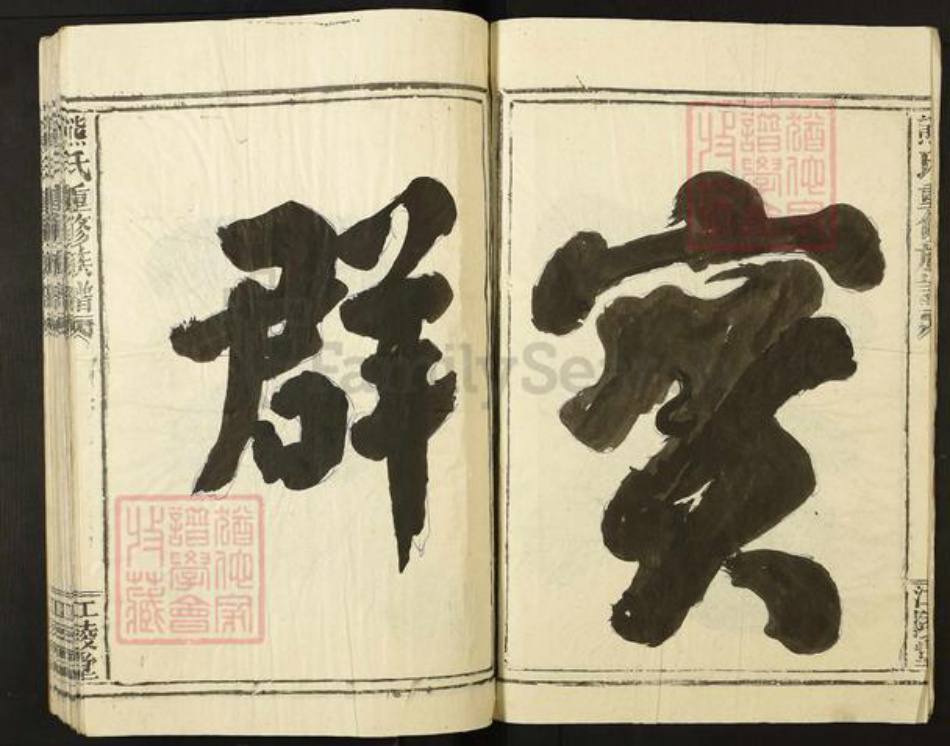 熊氏重修族譜
江陵堂
實
群
熊氏重修族譜
江陵堂
猶他家
譜學會
收藏
猶他家
譜學會
收藏
FamilySearch